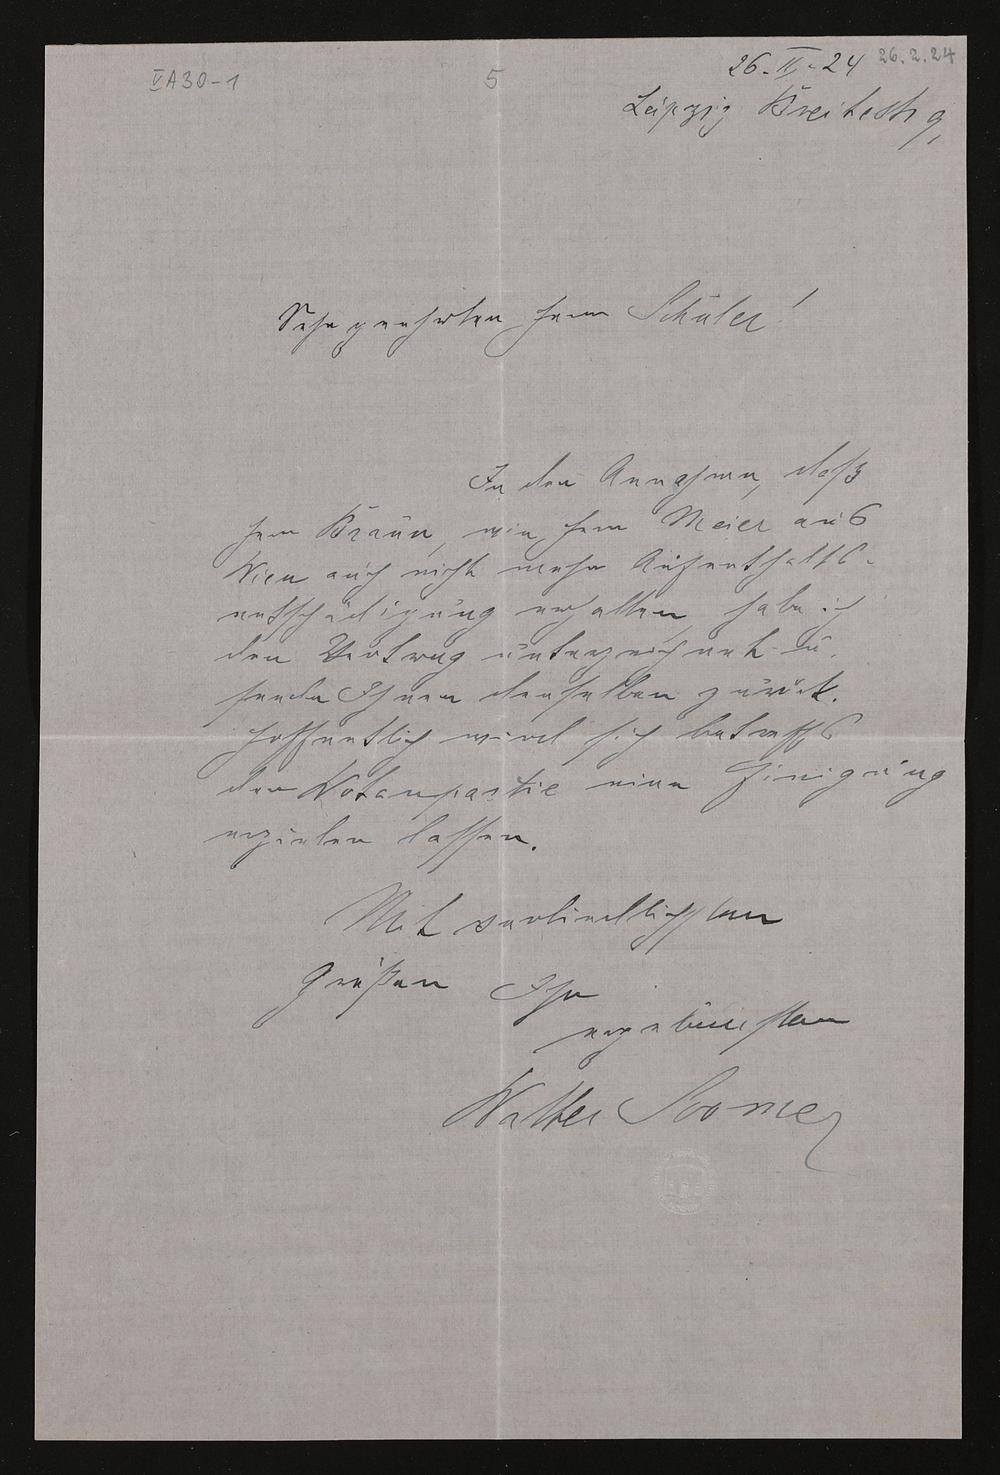 VA30-1
5
26.2.24
26-II-24
Leipzig Breitestr 9,
Sehr geehrter Herr Schüler!
In der Annahme, daß
Herr Braun, wie Herr Meier aus
Wien auch nicht mehr Aufenthalts-
entschädigung erhalten, habe ich
den Vertrag unterzeichnet u.
sende Ihnen denselben zurück.
Hoffentlich wird sich betreffs
der Wotanpartie eine Einigung
erzielen lassen.
Mit verbindlichsten
Grüßen Ihr
ergebenster
Walter Soomer